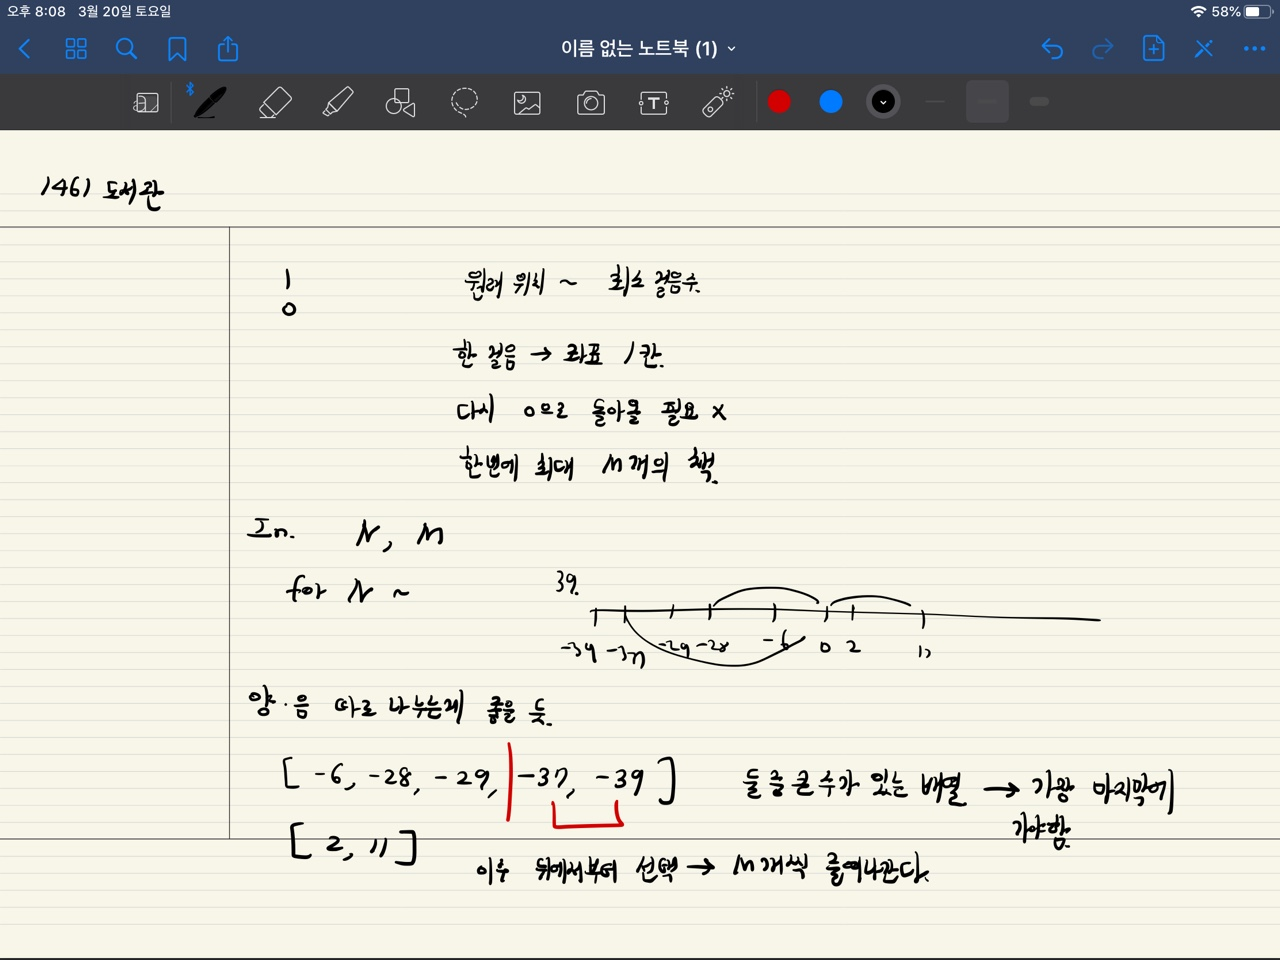 오후 8:08 3월 20일 토요일
58%
이름 없는 노트북 (1)
1461 도서관
1
0
원래 위치 ~ 최소 걸음수.
한 걸음 → 좌표 1칸.
다시 0으로 돌아올 필요 x
한번에 최대 M개의 책.
In. N, M
for N ~
39.
-39 -37 -29 -28 -6 0 2 11
양·음 따로 나누는게 좋을 듯.
[ -6, -28, -29, -37, -39 ]
둘 중 큰 수가 있는 배열 → 가장 마지막에
가야함.
[ 2, 11 ]
이후 뒤에서부터 선택 → M개씩 줄여나간다.